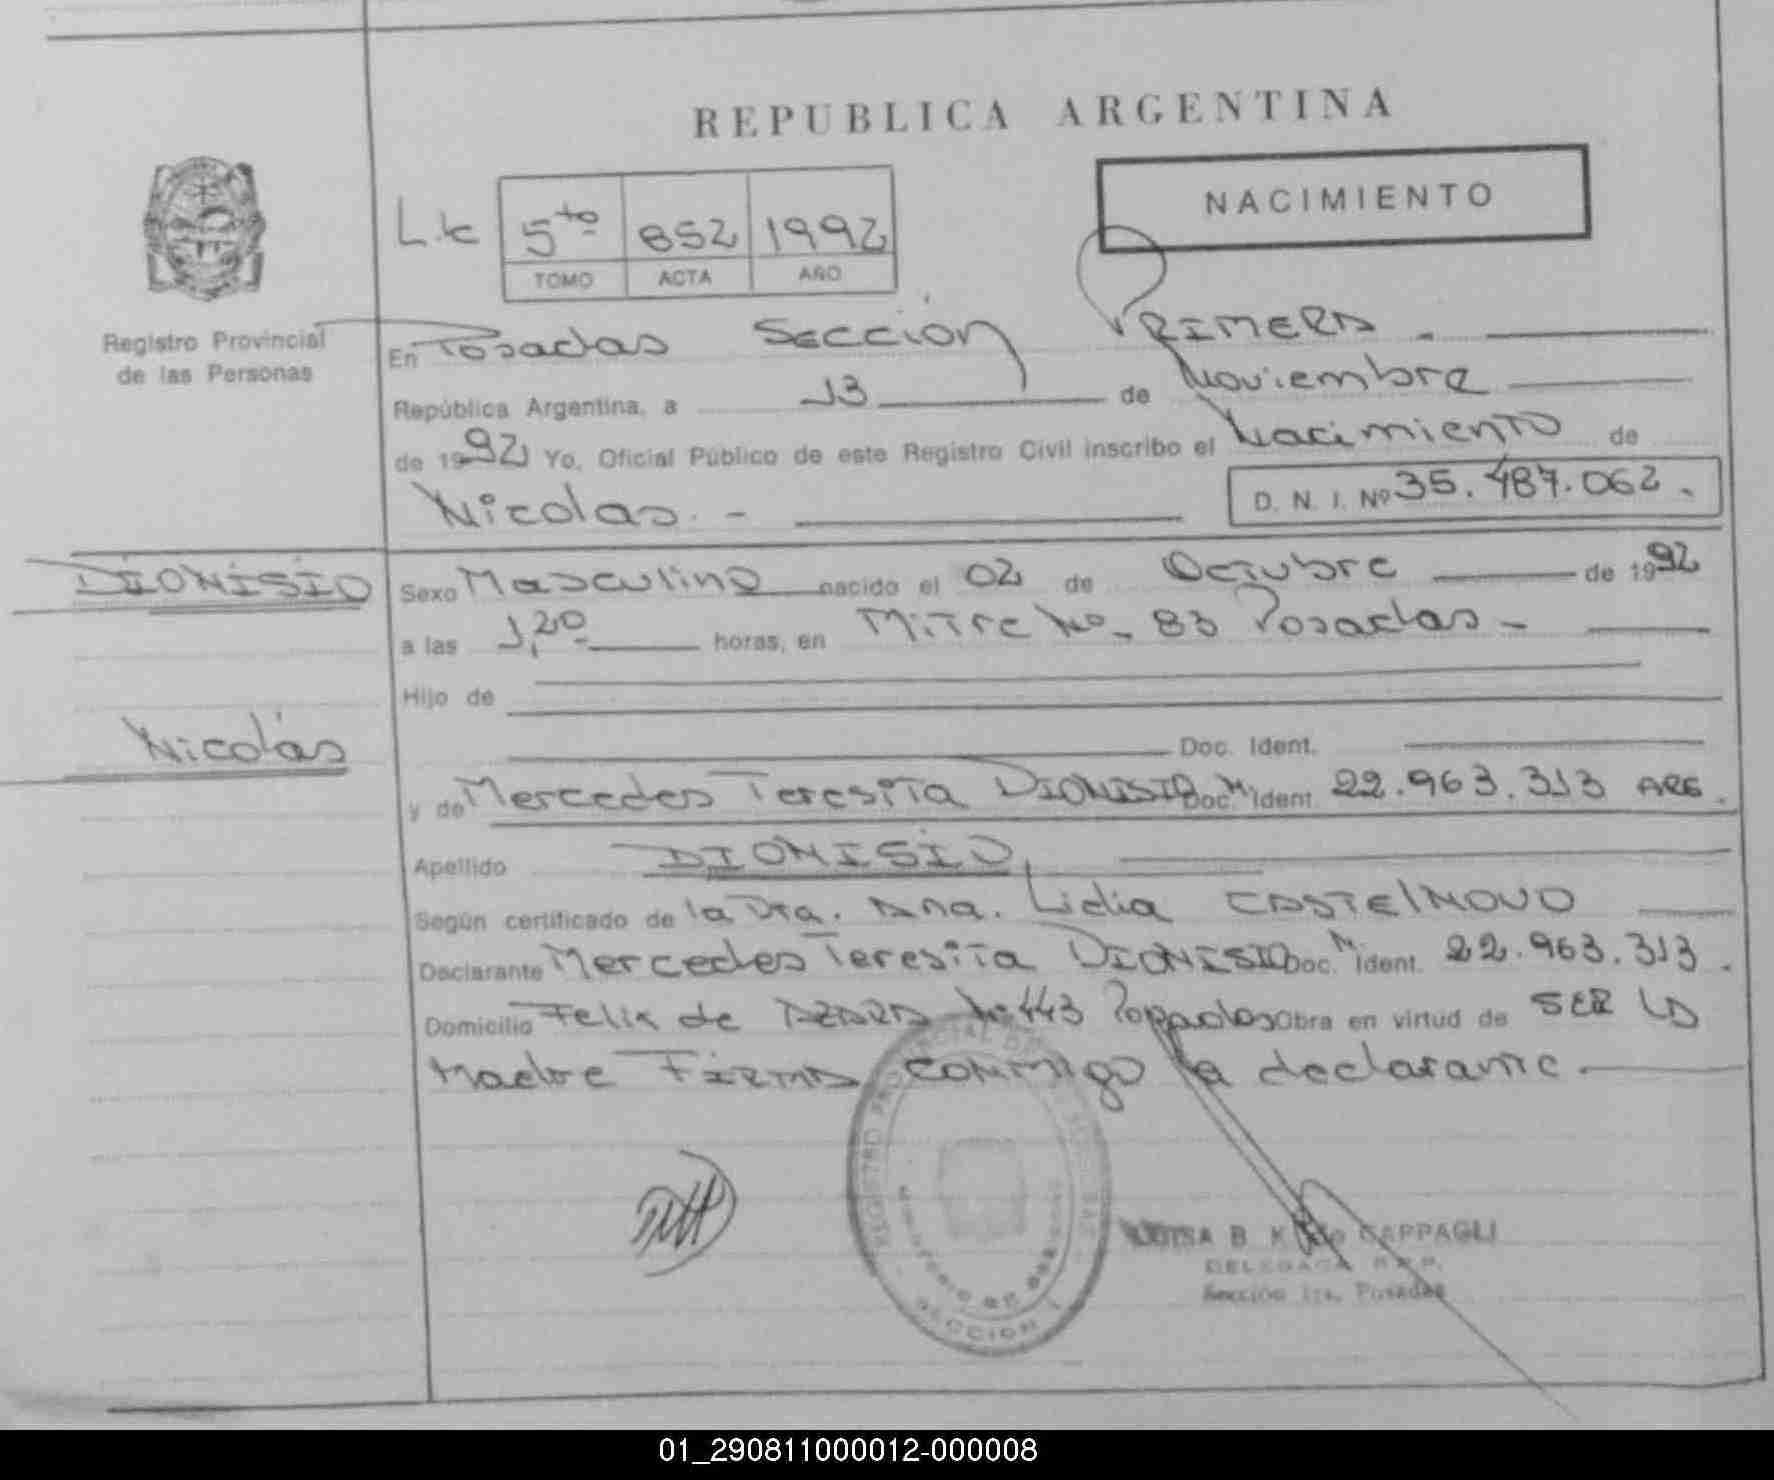 REPUBLICA ARGENTINA
NACIMIENTO
5to 852 1992
TOMO ACTA AÑO
Registro Provincial
de las Personas
En Posadas Sección PRIMERA. -
República Argentina, a 13 de Noviembre
de 1992 Yo, Oficial Público de este Registro Civil inscribo el Nacimiento de
Nicolas. -
D. N. I. Nº 35.487.062.
DIONISIO
Sexo Masculino nacido el 02 de Octubre de 1992
a las 1,20 horas, en Mitre No. 83 Posadas -
Hijo de
Nicolás
Doc. Ident.
y de Mercedes Teresita DIONISIO Doc. Ident. 22.963.313 ARG.
Apellido DIONISIO,
Según certificado de la Dra. Ana. Lidia CASTElNOVO
Declarante Mercedes Teresita DIONISIO Doc. Ident. 22.963.313.
Domicilio Felix de AZARA No 443 Posadas Obra en virtud de SER LA
Madre FIRMA conmigo la declarante. -
REGISTRO PROVINCIAL DE
SECCION 1
B K de CAPPAGLI
DELEGADA R.P.P.
Sección 1ra. Posadas
01_290811000012-000008